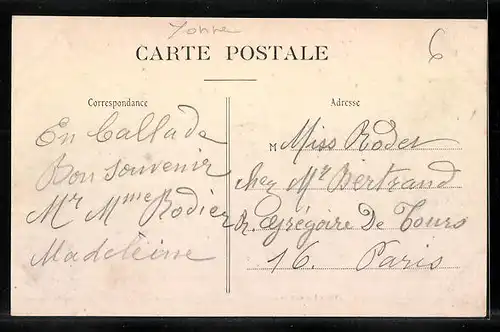 Yonne
6
CARTE POSTALE
Correspondance
En Ballade
Bon Souvenir
Mr Mme Rodier
Madeleine
Adresse
M Miss Rodet
chez Mr Bertrand
R. Grégoire De Tours
16. Paris